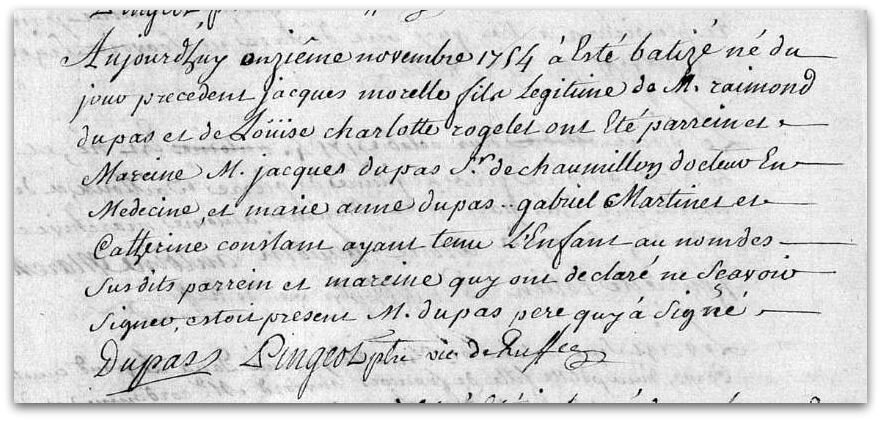 Aujourd'huy onziême novembre 1754 à Esté batizé né du
jour precedent jacques morelle fils legitime de M. raimond
dupas et de Loüise charlotte rogelet ont Eté parrein et
Mareine M. jacques dupas Sr. de chaumillon docteur En
Medecine et marie anne dupas .. gabriel Martinet et
Catherine constant ayant tenu L'Enfant au nom des
susdits parrein et mareine quy ont declaré ne sçavoir
signer, estoit present M. dupas pere quy à signé
Dupas Pingeot ptre vic. de Ruffec